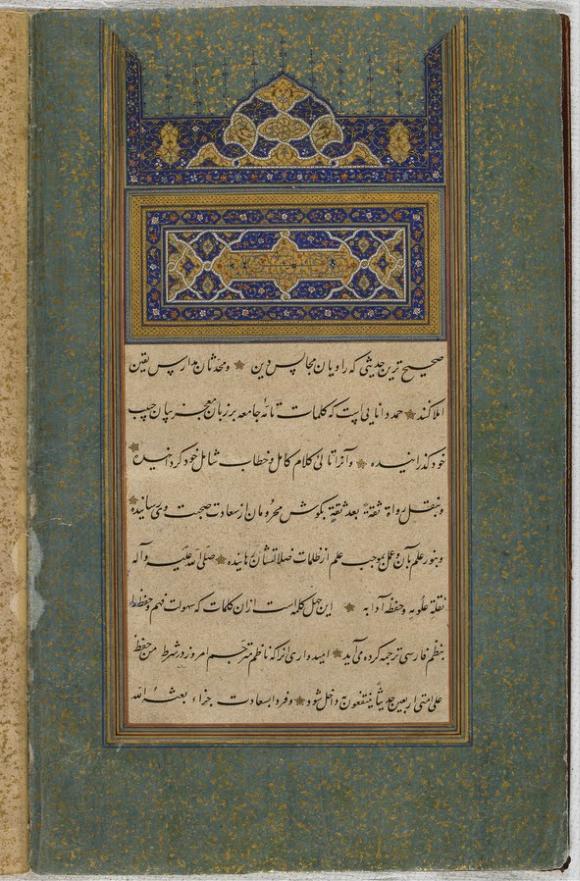 صحیح ترین حدیثی که راویان مجالس دین و محدثان مدارس یقین
املا کنند حمد دانایی است که کلمات تامهٔ جامعه بر زبان معجز بیان حبیب
خود گذرانیده و آنرا تالی کلام کامل و خطاب شامل خود گردانیده
و بنقل رواة ثقةً بعد ثقةٍ بگوش محرومان از سعادت صحبت وی رسانیده
و بنور علم بآن و عمل بموجب علم از ظلمات ضلالتشان رهانیده صلی الله علیه و آله
نقلة علومه و حفظة آدابه این چهل کلمه است ازان کلمات که سهولت فهم و حفظ را
بنظم فارسی ترجمه کرده می‌آید امیدواری آنکه ناظم مترجم امروز در شرط من حفظ
علی امتی اربعین حدیثاً ینتفعون به داخل شود و فردا بسعادت جزاء بعثه الله